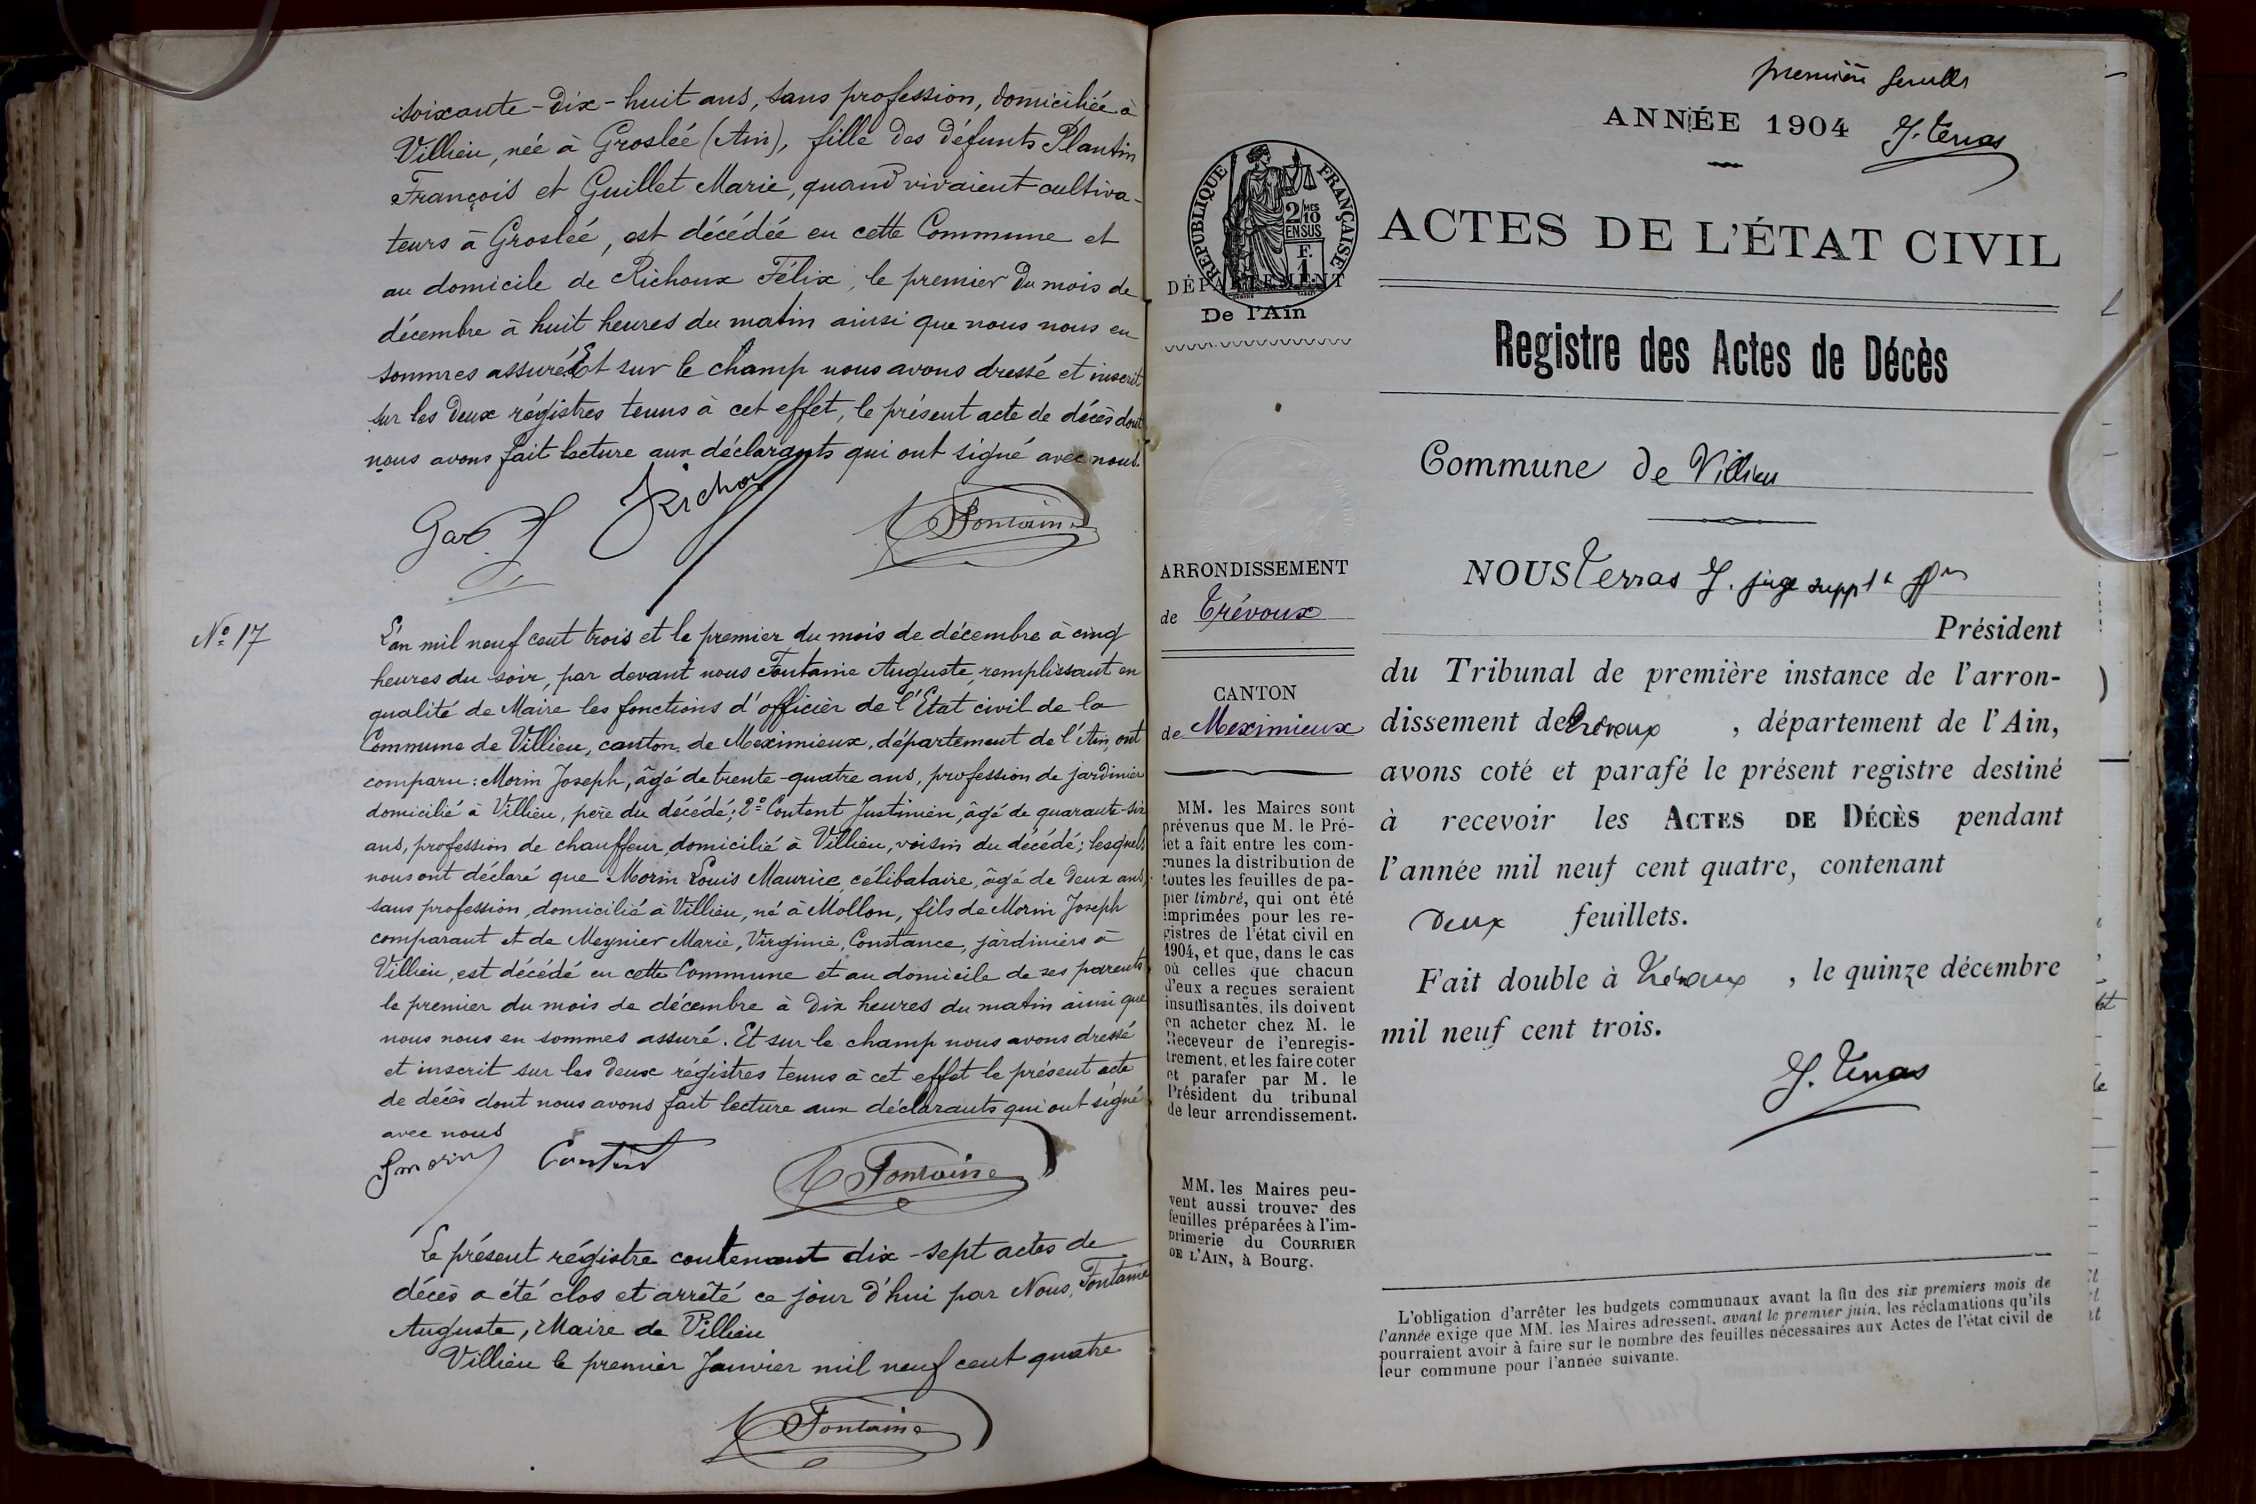 soixante-dix-huit ans, sans profession, domiciliée à
Villieu, née à Groslée (Ain), fille des défunts Plantin
François et Guillet Marie, quand vivaient cultiva-
teurs à Groslée, est décédée en cette Commune et
au domicile de Richoux Félix, le premier du mois de
décembre à huit heures du matin ainsi que nous nous en
sommes assuré. Et sur le champ nous avons dressé et inscrit
sur les deux régistres tenus à cet effet, le présent acte de décès dont
nous avons fait lecture aux déclarants qui ont signé avec nous.
Richoux
A Fontaine
Nº 17
L'an mil neuf cent trois et le premier du mois de décembre à cinq
heures du soir, par devant nous Fontaine Auguste, remplissant en
qualité de Maire les fonctions d'officier de l'Etat civil de la
Commune de Villieu, canton de Meximieux, département de l'Ain, ont
comparu: Morin Joseph, âgé de trente-quatre ans, profession de jardinier
domicilié à Villieu, père du décédé; 2º Content Justinien, âgé de quarante-six
ans, profession de chauffeur, domicilié à Villieu, voisin du décédé; lesquels
nous ont déclaré que Morin Louis Maurice, célibataire, âgé de deux ans,
sans profession, domicilié à Villieu, né à Mollon, fils de Morin Joseph
comparant et de Meynier Marie, Virginie, Constance, jardiniers à
Villieu, est décédé en cette Commune et au domicile de ses parents
le premier du mois de décembre à dix heures du matin ainsi que
nous nous en sommes assuré. Et sur le champ nous avons dressé
et inscrit sur les deux régistres tenus à cet effet le présent acte
de décès dont nous avons fait lecture aux déclarants qui ont signé
avec nous
J morin Content A Fontaine
Le présent régistre contenant dix-sept actes de
décès a été clos et arrêté ce jour d'hui par Nous, Fontaine
Auguste, Maire de Villieu
Villieu le premier Janvier mil neuf cent quatre
A Fontaine
première feuille
ANNÉE 1904
J. Terras
RÉPUBLIQUE FRANÇAISE
2/MES
10
EN SUS
F.
1.
DÉPARTEMENT
De l'Ain
ARRONDISSEMENT
de Trévoux
CANTON
de Meximieux
MM. les Maires sont
prévenus que M. le Pré-
fet a fait entre les com-
munes la distribution de
toutes les feuilles de pa-
pier timbré, qui ont été
imprimées pour les re-
gistres de l'état civil en
1904, et que, dans le cas
où celles que chacun
d'eux a reçues seraient
insuffisantes, ils doivent
en acheter chez M. le
Receveur de l'enregis-
trement, et les faire coter
et parafer par M. le
Président du tribunal
de leur arrondissement.
MM. les Maires peu-
vent aussi trouver des
feuilles préparées à l'im-
primerie du COURRIER
DE L'AIN, à Bourg.
ACTES DE L'ÉTAT CIVIL
Registre des Actes de Décès
Commune de Villieu
NOUS Terras J. juge suppt ffon
Président
du Tribunal de première instance de l'arron-
dissement de Trévoux , département de l'Ain,
avons coté et parafé le présent registre destiné
à recevoir les ACTES DE DÉCÈS pendant
l'année mil neuf cent quatre, contenant
deux feuillets.
Fait double à Trévoux , le quinze décembre
mil neuf cent trois.
J. Terras
L'obligation d'arrêter les budgets communaux avant la fin des six premiers mois de
l'année exige que MM. les Maires adressent, avant le premier juin, les réclamations qu'ils
pourraient avoir à faire sur le nombre des feuilles nécessaires aux Actes de l'état civil de
leur commune pour l'année suivante.